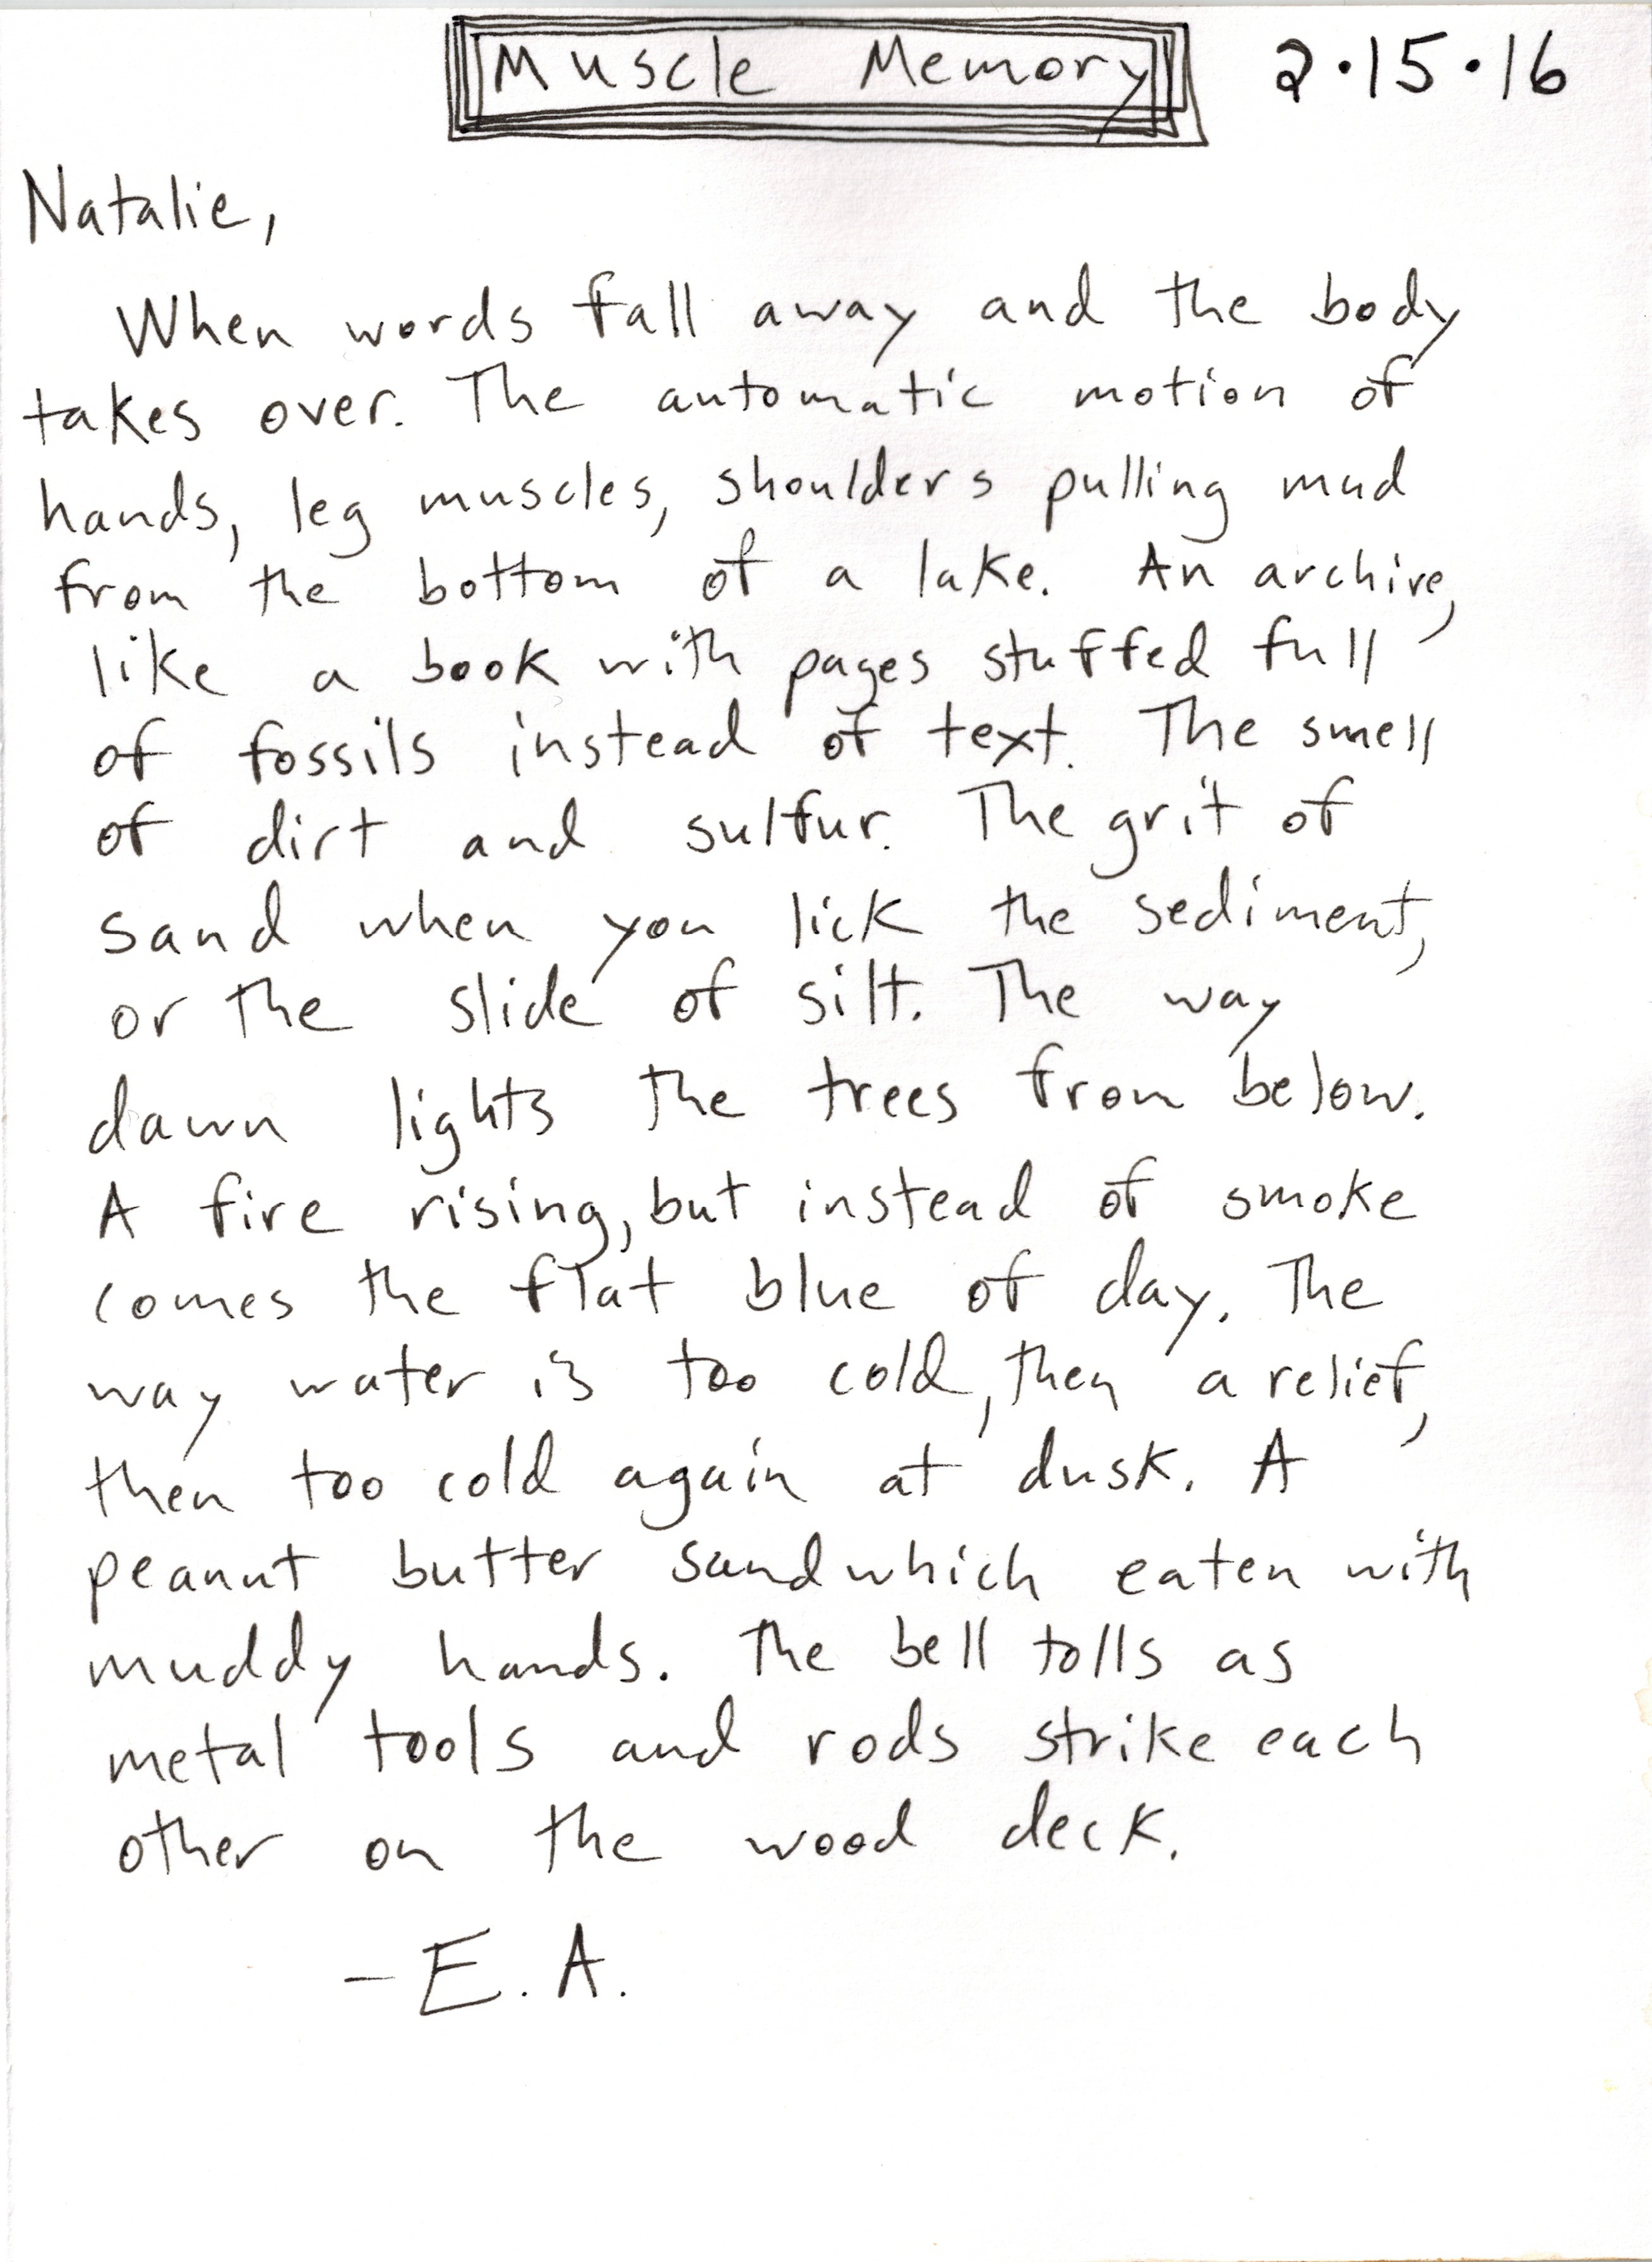 Muscle Memory 2.15.16
Natalie,
When words fall away and the body
takes over. The automatic motion of
hands, leg muscles, shoulders pulling mud
from the bottom of a lake. An archive,
like a book with pages stuffed full
of fossils instead of text. The smell
of dirt and sulfur. The grit of
sand when you lick the sediment,
or the slide of silt. The way
dawn lights the trees from below.
A fire rising, but instead of smoke
comes the flat blue of day. The
way water is too cold, then a relief,
then too cold again at dusk. A
peanut butter sandwhich eaten with
muddy hands. The bell tolls as
metal tools and rods strike each
other on the wood deck.
- E. A.